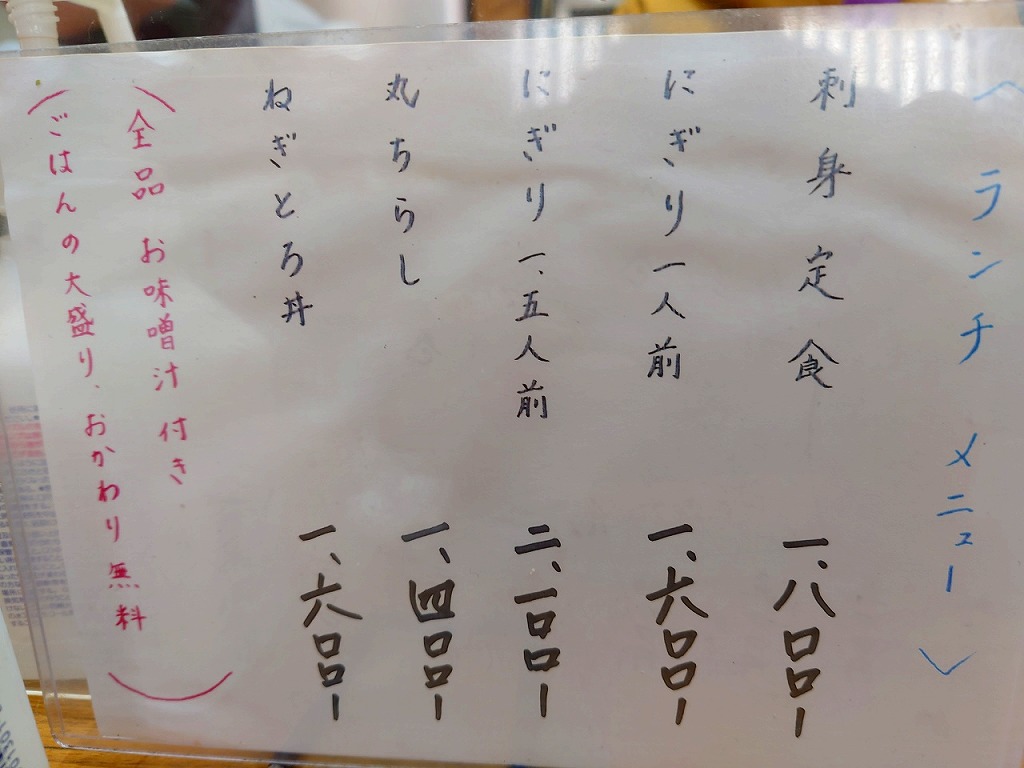 〈ランチ メニュー〉
刺身定食 一、八〇〇ー
にぎり一人前 一、六〇〇ー
にぎり一、五人前 二、一〇〇ー
丸ちらし 一、四〇〇ー
ねぎとろ丼 一、六〇〇ー
(全品 お味噌汁付き
ごはんの大盛り、おかわり無料)